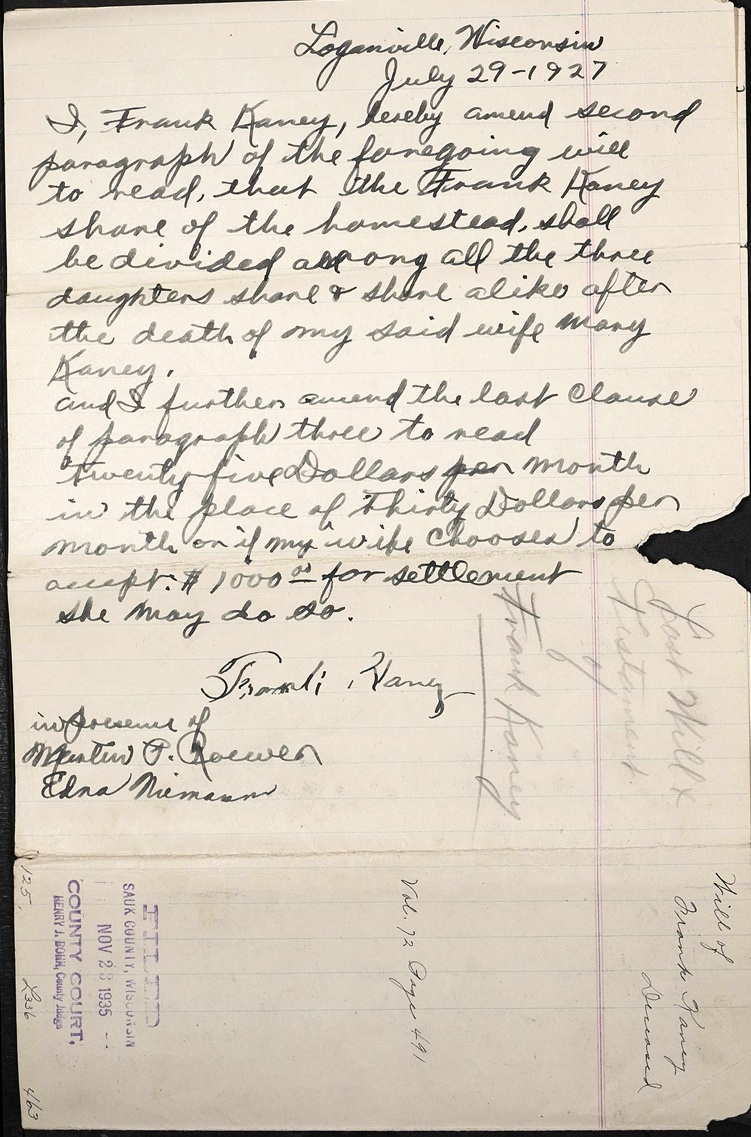 Loganville, Wisconsin
July 29-1927
I, Frank Kaney, hereby amend second
paragraph of the foregoing will
to read, that the Frank Kaney
share of the homestead, shall
be divided among all the three
daughters share & share alike after
the death of my said wife Mary
Kaney.
and I further amend the last clause
of paragraph three to read
twenty five Dollars per month
in the place of Thirty Dollars per
month or if my wife chooses to
accept $1000 00 for settlement
she may do so.
Frank Kaney
in presence of
Martin P. Roewer
Edna Niemann
Last Will &
Testament
of
Frank Kaney
Will of
Frank Kaney
Deceased
Vol. 72 Page 491
FILED
SAUK COUNTY, WISCONSIN
NOV 23 1935
COUNTY COURT,
HENRY J. BOHN, County Judge
125.
463